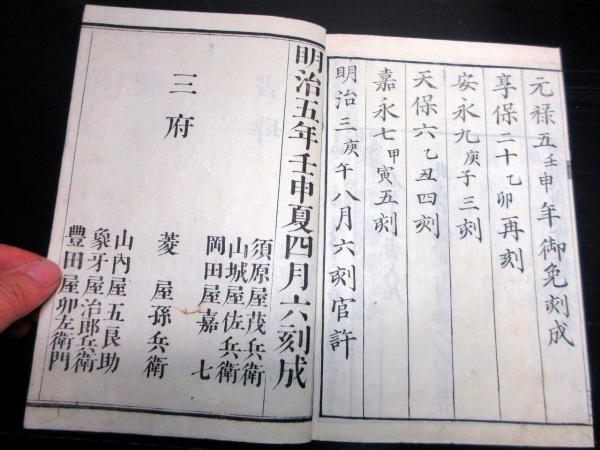 元禄五壬申年御免刻成
享保二十乙卯再刻
安永九庚子三刻
天保六乙丑四刻
嘉永七甲寅五刻
明治三庚午八月六刻官許
明治五年壬申夏四月六刻成
三府
須原屋茂兵衛
山城屋佐兵衛
岡田屋嘉七
菱屋孫兵衛
山內屋五良助
象牙屋治郎兵衛
豊田屋卯左衛門